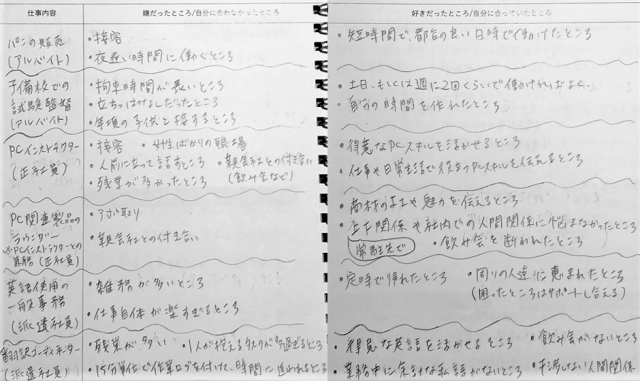 仕事内容
嫌だったところ/自分に合わなかったところ
好きだったところ/自分に合っていたところ
パンの販売
(アルバイト)
・接客
・夜遅い時間に働くところ
・短時間で、都合の良い日時で働けたところ
予備校での
試験監督
(アルバイト)
・拘束時間が長いところ
・立ちっぱなしだったところ
・年頃の子供と接するところ
・土日、もしくは週に2回くらいで働ければよく、
・自分の時間を作れたところ
PCインストラクター
(正社員)
・接客 ・女性ばかりの職場
・人前に立って話すところ ・親会社との付き合い
・残業が多かったところ (飲み会など)
・得意なPCスキルを活かせるところ
・仕事や日常生活で役立つPCスキルを伝えるところ
PC関連製品の
ラウンダー
※PCインストラクターとの
兼務(正社員)
・アポ取り
・親会社との付き合い
・商材の良さや魅力を伝えるところ
・上下関係や社内での人間関係に悩まなかったところ
常駐先で
・飲み会を断われたところ
英語使用の
一般事務
(派遣社員)
・雑務が多いところ
・仕事自体が楽すぎるところ
・定時で帰れたところ ・周りの人達に恵まれたところ
(困ったところはサポートし合える)
翻訳コーディネーター
(派遣社員)
・残業が多い ・1人が抱えるタスクが多過ぎるところ
・15分単位で作業ログを付けて、時間に追われるところ
・得意な英語を活かせるところ ・飲み会がないところ
・業務中に余計な私語がないところ ・干渉しない人間関係